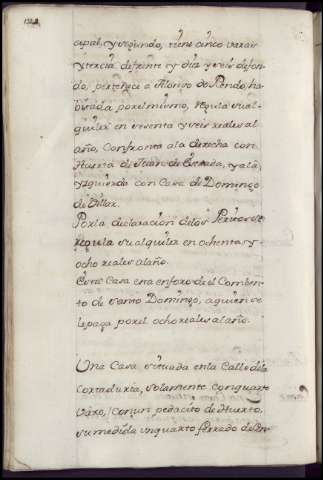 cipal, y segundo, tiene cinco varas
y tercia de frente y diez y seis de fon-
do, pertenece a Alonso do Pendo, ha-
vitada por el mismo, regula su al-
quiler en sesenta y seis reales al
año, Confronta a la derecha con
Huerta de Juan de Estrada, y a la
yzquierda con Casa de Domingo
de Piller.
Por la declaración de los Peritos se
regula su alquiler en ochenta y
ocho reales al año.
Esta Casa esta enforo de el Comben-
to de Santo Domingo, a quien se
le paga por el ocho reales al año.
Una Casa situada en la Calle de la
Cortaduria, solamente con quarto
vaxo, con un pedacito de Huerto,
su medida un quarto ferrado de